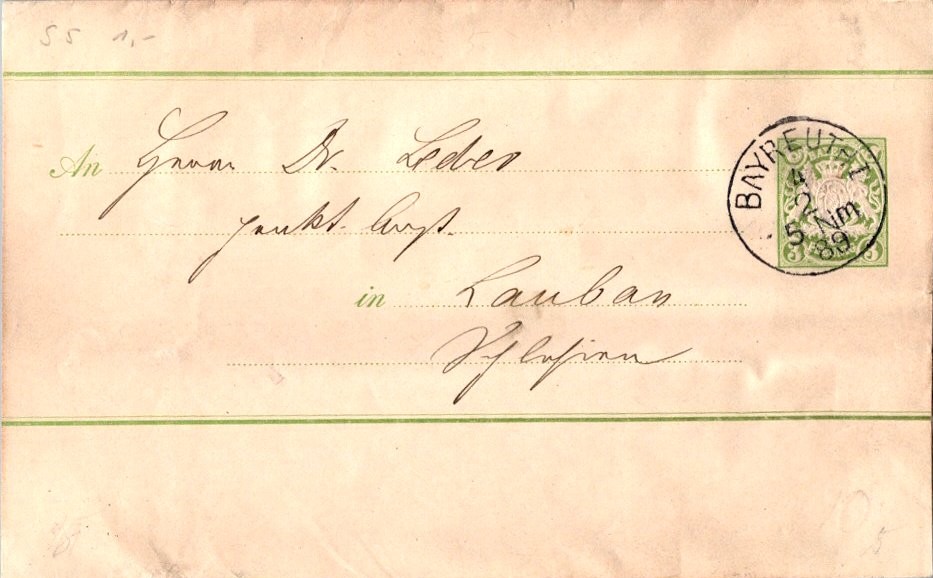 55 1,-
An Herrn Dr. Leder
prakt. Arzt.
in Lauban
Schlesien
BAYREUTH I
4
2 Nm
5 89
3 3
5